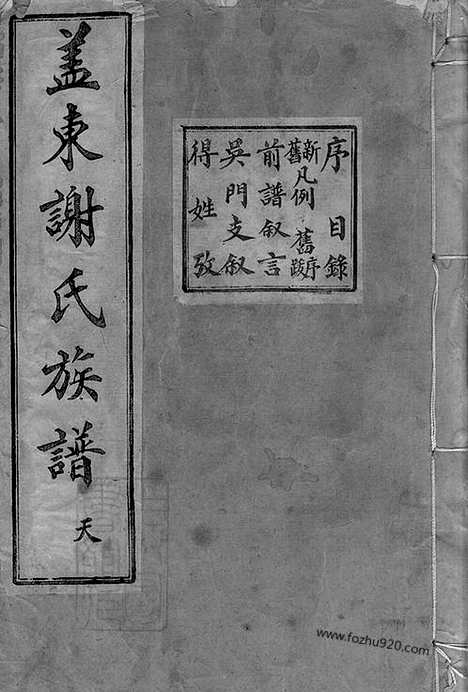 序 目錄
新舊凡例 舊序跋
前譜叙言
吳門支叙
得姓攷
盖東謝氏族譜 天
www.fozhu920.com